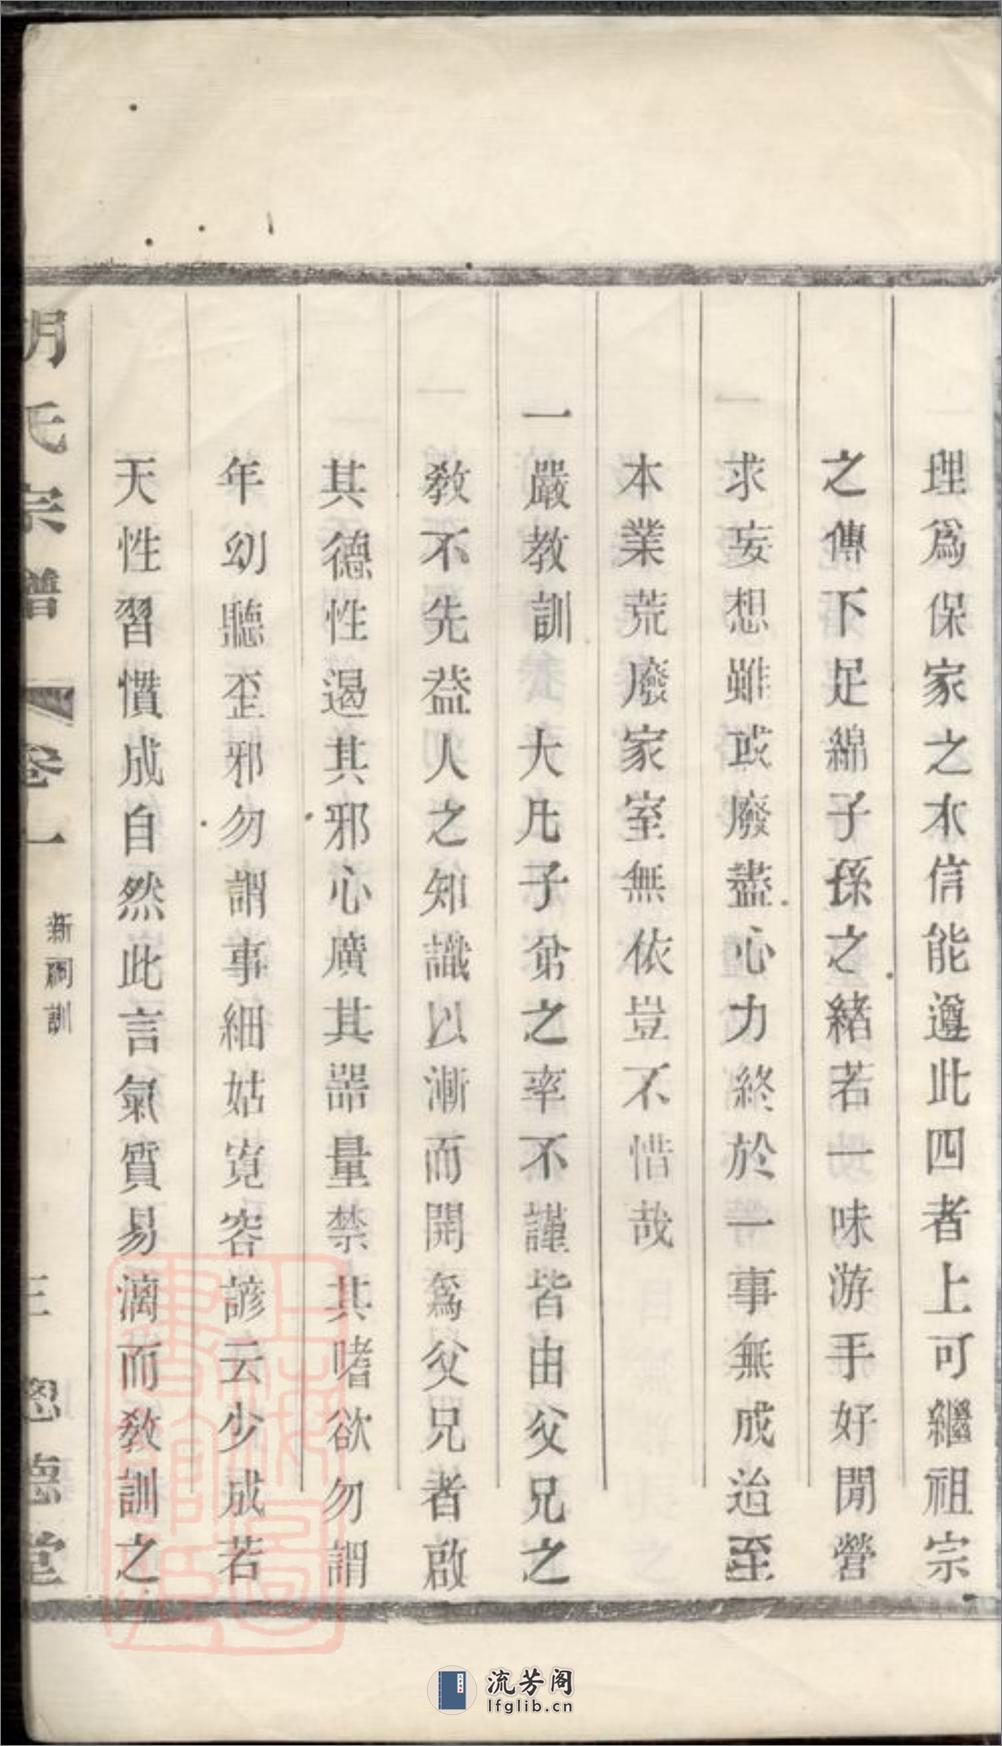 理爲保家之本信能遵此四者上可繼祖宗
之傳下足綿子孫之緒若一味游手好閒營
求妄想雖或廢盡心力終於一事無成迨至
本業荒廢家室無依豈不惜哉
一嚴教訓　大凡子弟之率不謹皆由父兄之
教不先益人之知識以漸而開爲父兄者啟
其德性遏其邪心廣其器量禁其嗜欲勿謂
年幼聽歪邪勿謂事細姑寛容諺云少成若
天性習慣成自然此言氣質易漓而教訓之
胡氏宗譜　卷一　新祠訓　三　德堂
上海圖書館藏
流芳阁
lfglib.cn